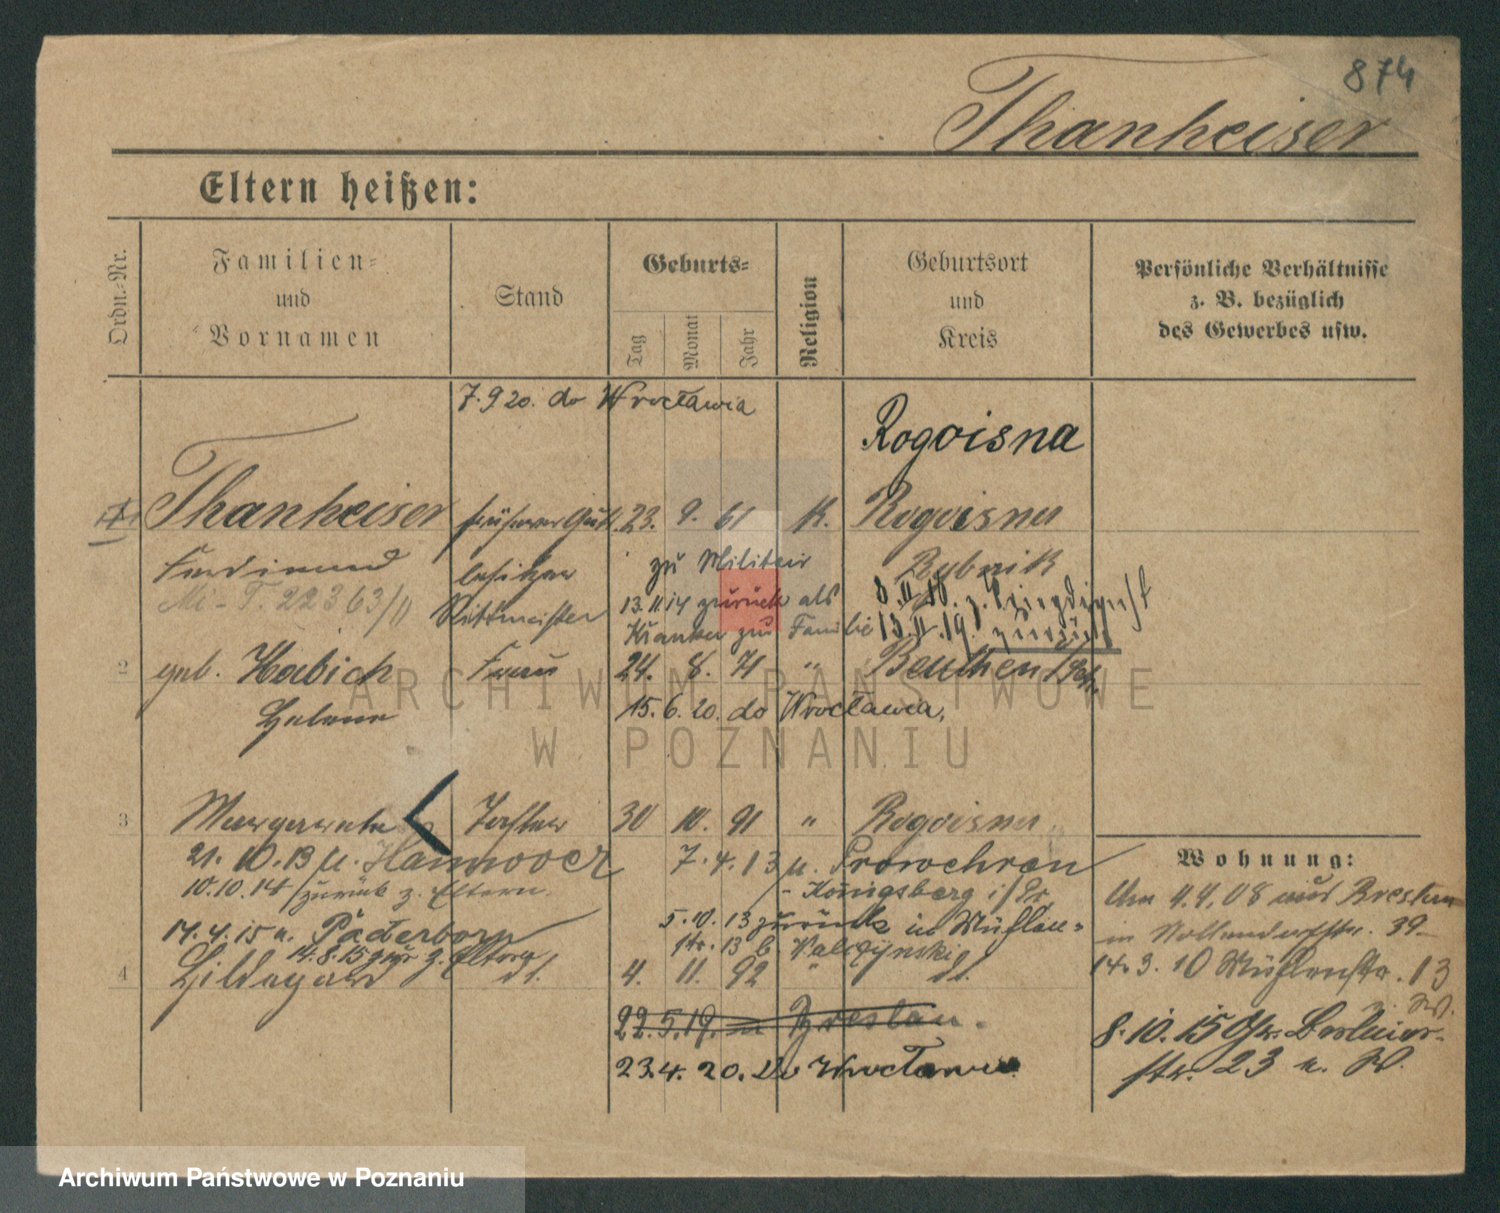 874
Thanheiser
Eltern heißen:
Ordn.-Nr.
Familien- und Vornamen
Stand
Geburts-
Tag
Monat
Jahr
Religion
Geburtsort und Kreis
Persönliche Verhältnisse z. B. bezüglich des Gewerbes usw.
7.9 20. do Wrocławia
Rogoisna
1 Thanheiser früherer Guts 23. 9. 61 K. Rogoisna
Ferdinand besitzer zu Militair Rybnik
Rittmeister 13.11.14 zurück als
Kranker zur Familie 13.II.19. zurück
2 geb. Habich Frau 24. 8. 71 " Beuthen
Helene 15.6.20. do Wrocławia,
3 Margarete Tochter 30 10. 91 " Rogoisna
21. 10. 13 u. Hannover 7.4.13 u. Prowehren
10.10.14 zurück z. Eltern. - Königsberg i/Pr
5.10.13 zurück in Mühlen-
14.4.15 u. Paderborn str. 13 b.
14.8.15 z. Eltern
4 Hildegard d. 4. 11. 92 " d.
22.5.19. Breslau.
23.4. 20. do Wrocławia.
Wohnung:
Um 4.4.08 aus Breslau
in 39
14.3.10 Mühlenstr. 13
8.10.15 Gr. Berliner-
str. 23 u.
ARCHIWUM PAŃSTWOWE
W POZNANIU
Archiwum Państwowe w Poznaniu